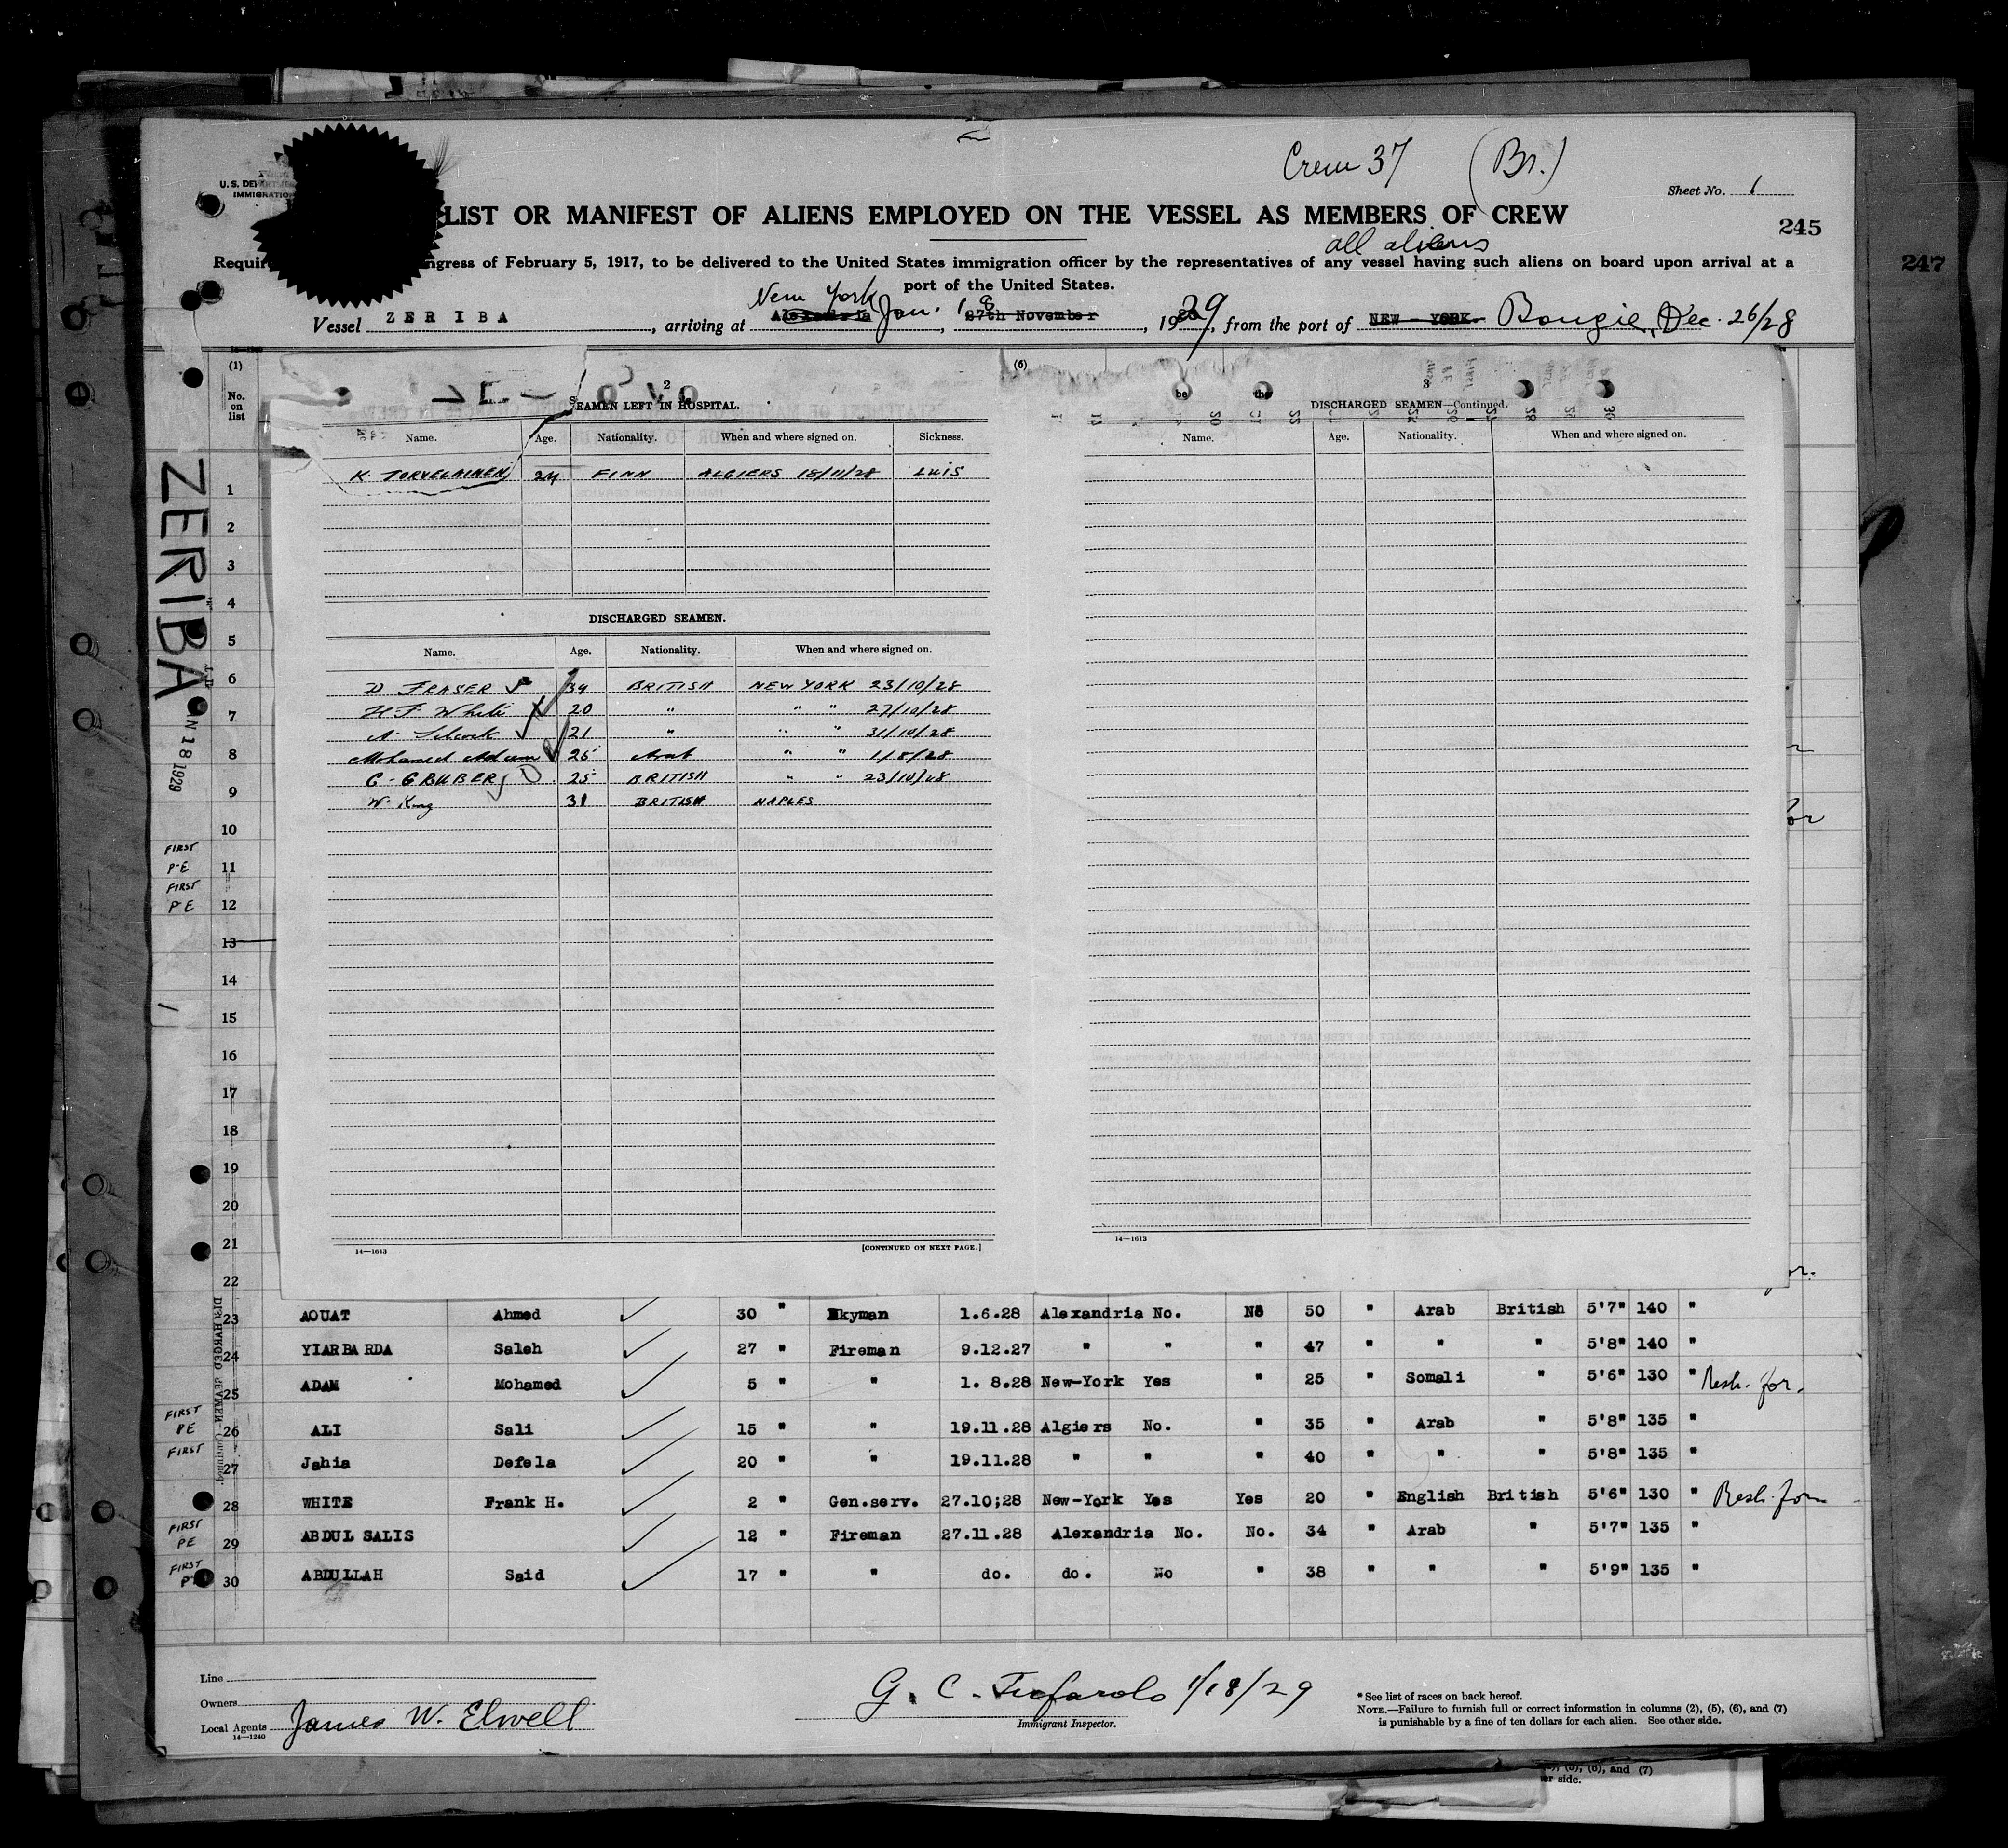 Crew 37 (Br.)
U.S. DEPARTM
IMMIGRATION
Sheet No. 1
LIST OR MANIFEST OF ALIENS EMPLOYED ON THE VESSEL AS MEMBERS OF CREW
245
247
all aliens
Requir ngress of February 5, 1917, to be delivered to the United States immigration officer by the representatives of any vessel having such aliens on board upon arrival at a
port of the United States.
Vessel ZERIBA, arriving at New York Alexandria Jan. 18 27th November, 1929, from the port of NEW-YORK Bougie, Dec. 26/28
(1)
No. on list
(6)
2
SEAMEN LEFT IN HOSPITAL.
Name. Age. Nationality. When and where signed on. Sickness.
K. TORVELAINEN 24 FINN ALGIERS 18/11/28 LUIS
DISCHARGED SEAMEN.
Name. Age. Nationality. When and where signed on.
D FRASER 34 BRITISH NEW YORK 23/10/28
H F White 20 " " " 27/10/28
A. 21 " " " 31/10/28
Mohamed Adam 25 Arab " " 1/8/28
C. GRUBER 25 BRITISH " " 23/10/28
W. King 31 BRITISH NAPLES
14—1613 [CONTINUED ON NEXT PAGE.]
be the
3
DISCHARGED SEAMEN—Continued.
Name. Age. Nationality. When and where signed on.
14—1613
ZERIBA
JAN 18 1929
1
2
3
4
5
6
7
8
9
10
FIRST
PE 11
FIRST
PE 12
13
14
15
16
17
18
19
20
21
22
DISCHARGED SEAMEN—Continued.
23 AOUAT Ahmed 30 " Dkyman 1.6.28 Alexandria No. No 50 " Arab British 5'7" 140 "
24 YIARBARDA Saleh 27 " Fireman 9.12.27 " " " 47 " " " 5'8" 140 "
25 ADAM Mohamed 5 " " 1. 8.28 New-York Yes " 25 " Somali " 5'6" 130 " Resh. for.
FIRST PE 26 ALI Sali 15 " " 19.11.28 Algiers No. " 35 " Arab " 5'8" 135 "
FIRST 27 Jahia Defela 20 " " 19.11.28 " " " 40 " " " 5'8" 135 "
28 WHITE Frank H. 2 " Gen.serv. 27.10;28 New-York Yes Yes 20 " English British 5'6" 130 " Resh. for
FIRST PE 29 ABDUL SALIS 12 " Fireman 27.11.28 Alexandria No. No. 34 " Arab " 5'7" 135 "
FIRST PE 30 ABDULLAH Said 17 " " do. do. No " 38 " " " 5'9" 135 "
Line
Owners
Local Agents James W. Elwell
14—1240
G. C. 1/18/29
Immigrant Inspector.
* See list of races on back hereof.
NOTE.—Failure to furnish full or correct information in columns (2), (5), (6), and (7)
is punishable by a fine of ten dollars for each alien. See other side.
(5), (6), and (7)
er side.